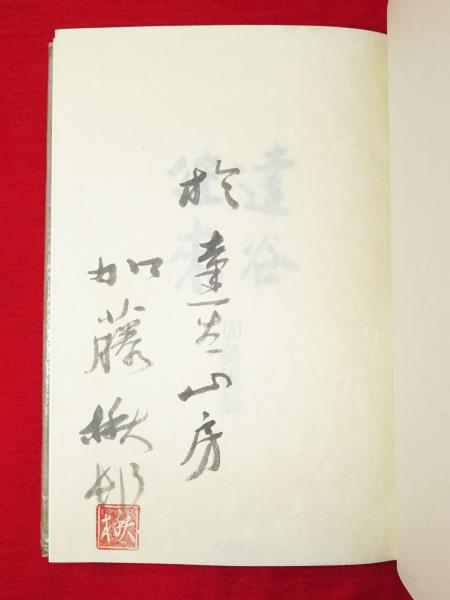 達谷
於達谷山房
加藤楸邨
楸